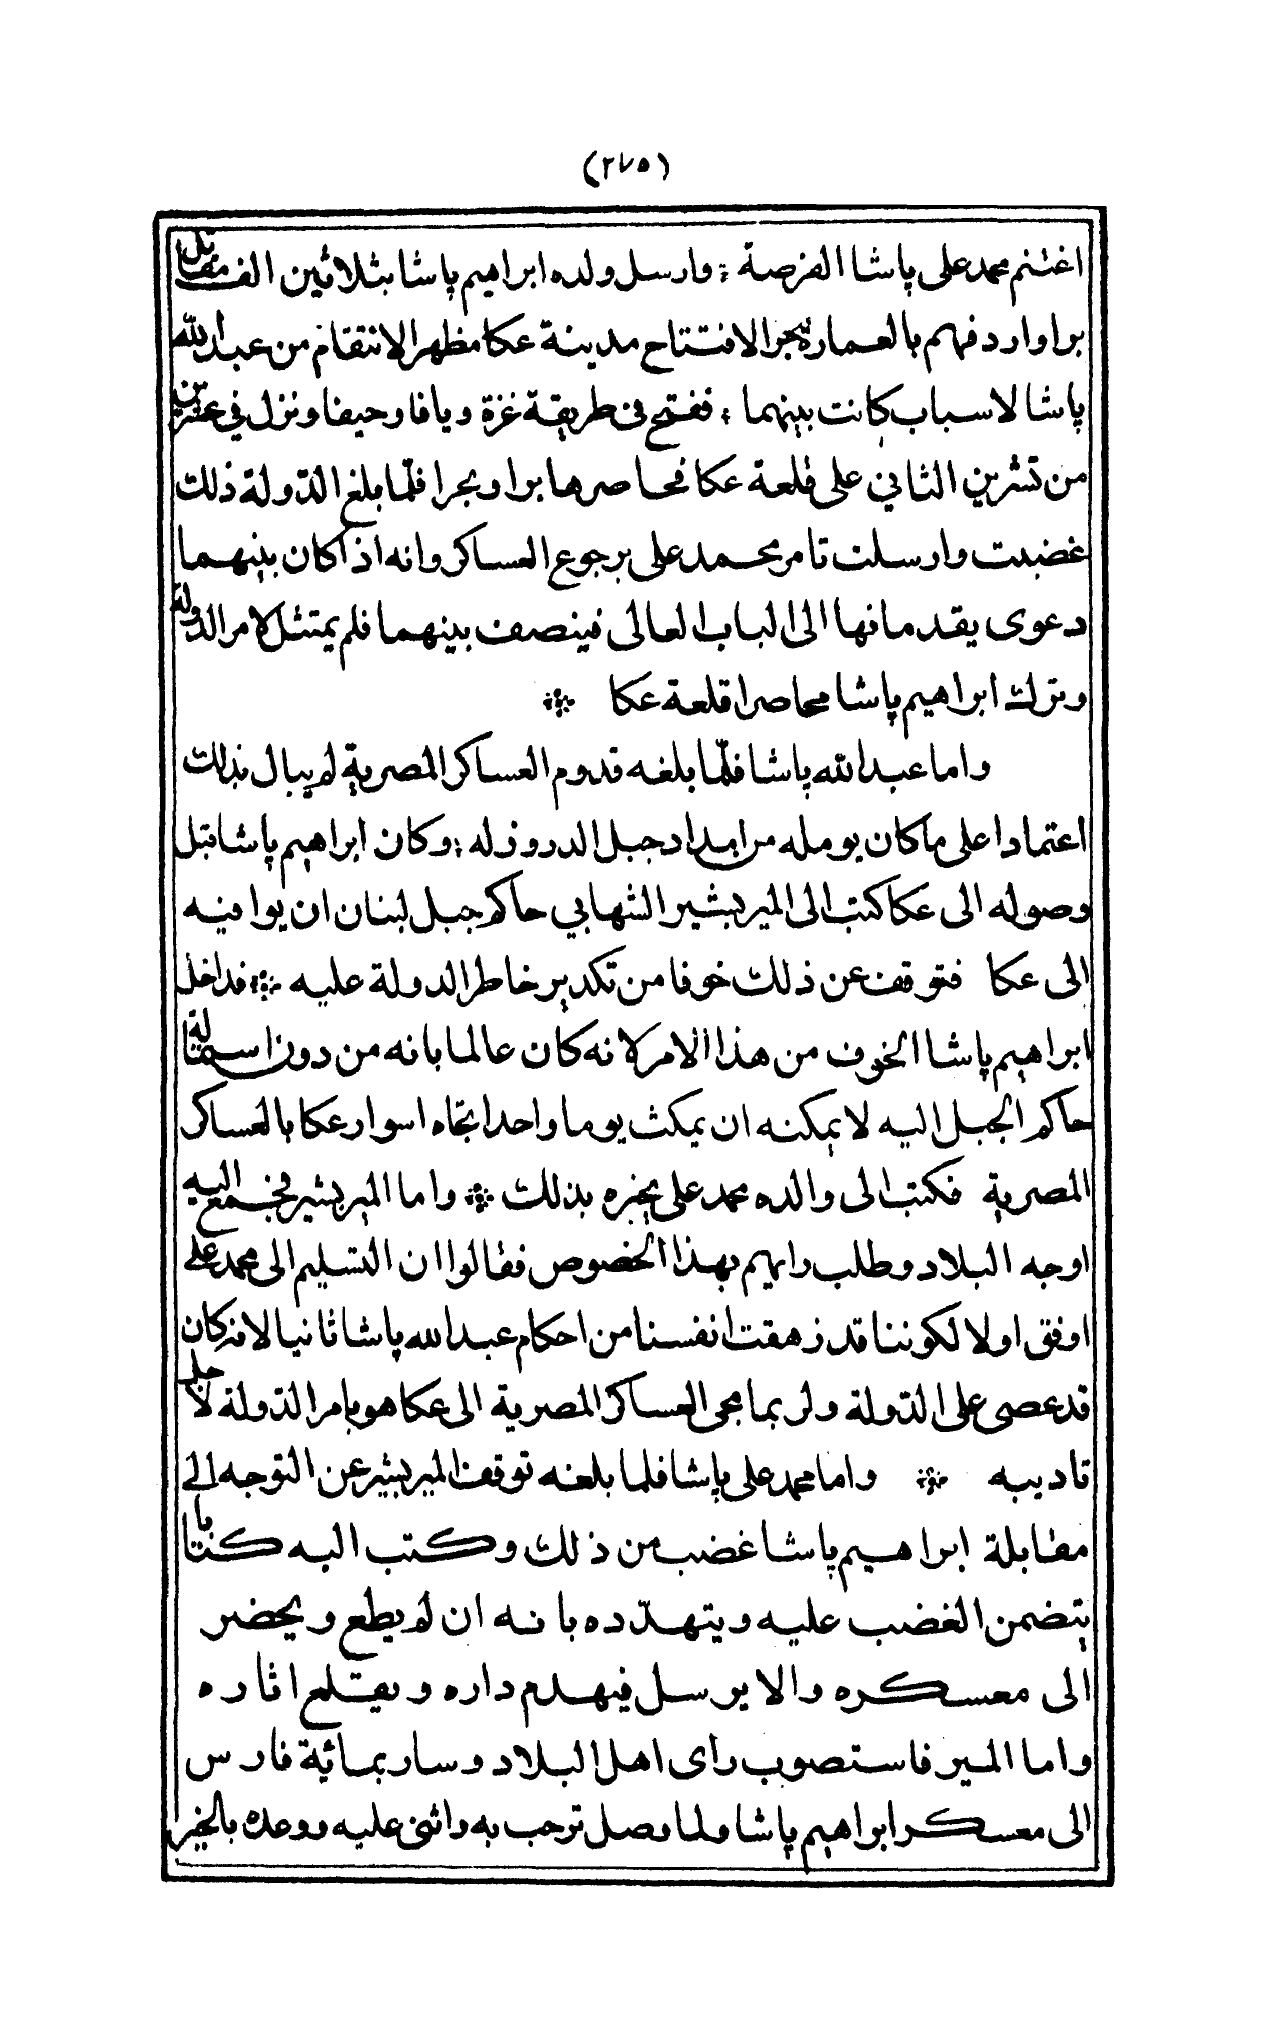 (٢٧٥)
اغتنم محمد على پاشا الفرصة ؛ وارسل ولده ابراهيم پاشا بثلاثين الف مقاتل
برا واردفهم بالعمارة بحرا لافتتاح مدينة عكا مظهر الانتقام من عبد الله
پاشا لاسباب كانت بينهما ؛ ففتح فى طريقه غزة ويافا وحيفا ونزل في عشرين
من تشرين الثاني على قلعة عكا فحاصرها برا وبحرا فلمّا بلغ الدّولة ذلك
غضبت وارسلت تامر محمد على برجوع العساكر وانه اذا كان بينهما
دعوى يقدمانها الى الباب العالى فينصف بينهما فلم يمتثل لامر الدولة
وترك ابراهيم پاشا محاصرا قلعة عكا
واما عبد الله پاشا فلمّا بلغه قدوم العساكر المصرية لم يبال بذلك
اعتمادا على ماكان يومله من امداد جبل الدروز له ؛ وكان ابراهيم پاشا قبل
وصوله الى عكا كتب الى المير بشير الشهابي حاكم جبل لبنان ان يوافيه
الى عكا فتوقف عن ذلك خوفا من تكدير خاطر الدولة عليه فداخل
ابراهيم پاشا الخوف من هذا الامر لانه كان عالما بانه من دون استمالة
حاكم الجبل اليه لا يمكنه ان يمكث يوما واحدا تجاه اسوار عكا بالعساكر
المصرية فكتب الى والده محمد على يخبره بذلك واما المير بشير فجمع اليه
اوجه البلاد وطلب رايهم بهذا الخصوص فقالوا ان التسليم الى محمد على
اوفق اولا لكوننا قد زهقت انفسنا من احكام عبد الله پاشا ثانيا لانه كان
قد عصى على الدّولة ولربما مجى العساكر المصرية الى عكا هو بامر الدّولة لاجل
تاديبه واما محمد على پاشا فلما بلغه توقف المير بشير عن التوجه الى
مقابلة ابراهيم پاشا غضب من ذلك وكتب اليه كتابا
يتضمن الغضب عليه ويتهدّده بانه ان لم يطع ويحضر
الى معسكره والا يرسل فيهدم داره ويقلع اثاره
واما المير فاستصوب راى اهل البلاد وسار بمائة فارس
الى معسكر ابراهيم پاشا ولما وصل ترحب به واثنى عليه ووعده بالخير